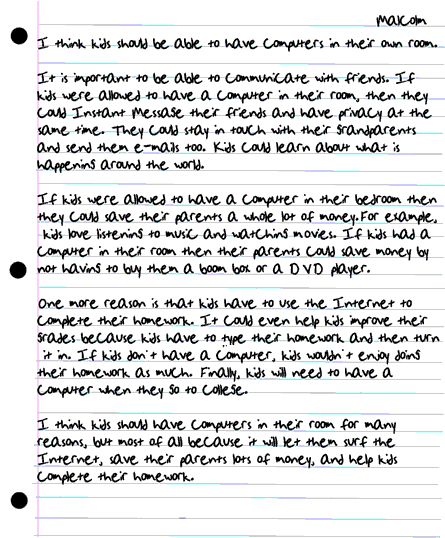 Malcolm
I think kids should be able to have computers in their own room.
It is important to be able to communicate with friends. If
kids were allowed to have a computer in their room, then they
could Instant Message their friends and have privacy at the
same time. They could stay in touch with their grandparents
and send them e-mails too. Kids could learn about what is
happening around the world.
If kids were allowed to have a computer in their bedroom then
they could save their parents a whole lot of money. For example,
kids love listening to music and watching movies. If kids had a
computer in their room then their parents could save money by
not having to buy them a boom box or a DVD player.
One more reason is that kids have to use the Internet to
complete their homework. It could even help kids improve their
grades because kids have to type their homework and then turn
it in. If kids don't have a computer, kids wouldn't enjoy doing
their homework as much. Finally, kids will need to have a
computer when they go to college.
I think kids should have computers in their room for many
reasons, but most of all because it will let them surf the
Internet, save their parents lots of money, and help kids
complete their homework.